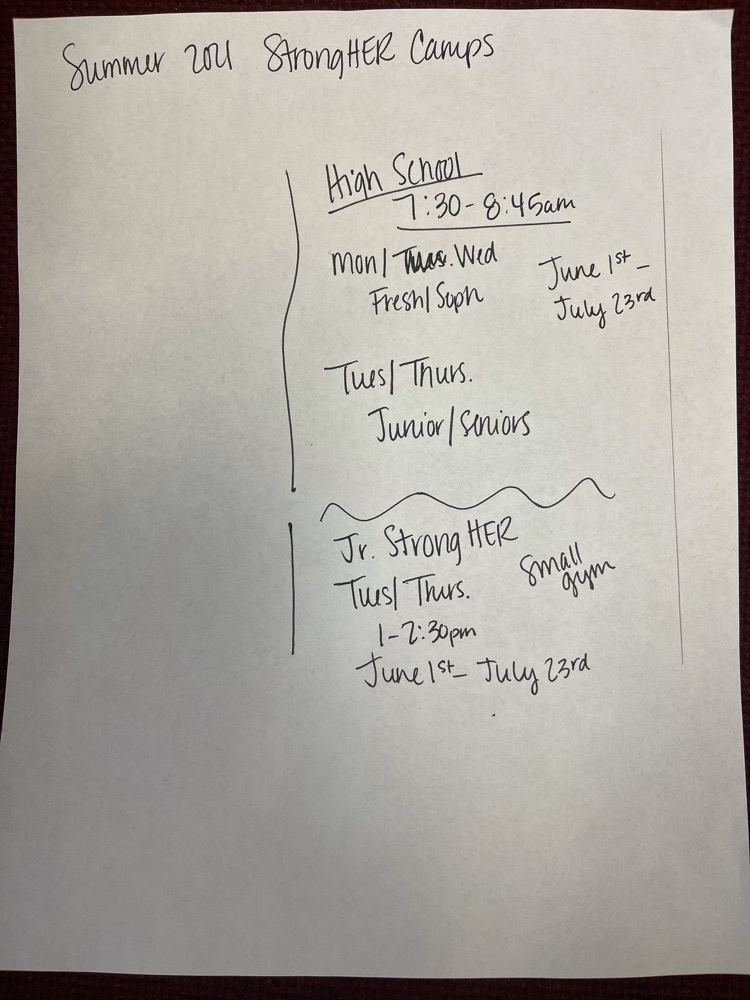 Summer 2021 StrongHER Camps
High School
7:30 - 8:45am
Mon/ Tues. Wed
Fresh/Soph
June 1st -
July 23rd
Tues/ Thurs.
Junior/Seniors
Jr. StrongHER
Tues/ Thurs.
small
gym
1-2:30pm
June 1st - July 23rd